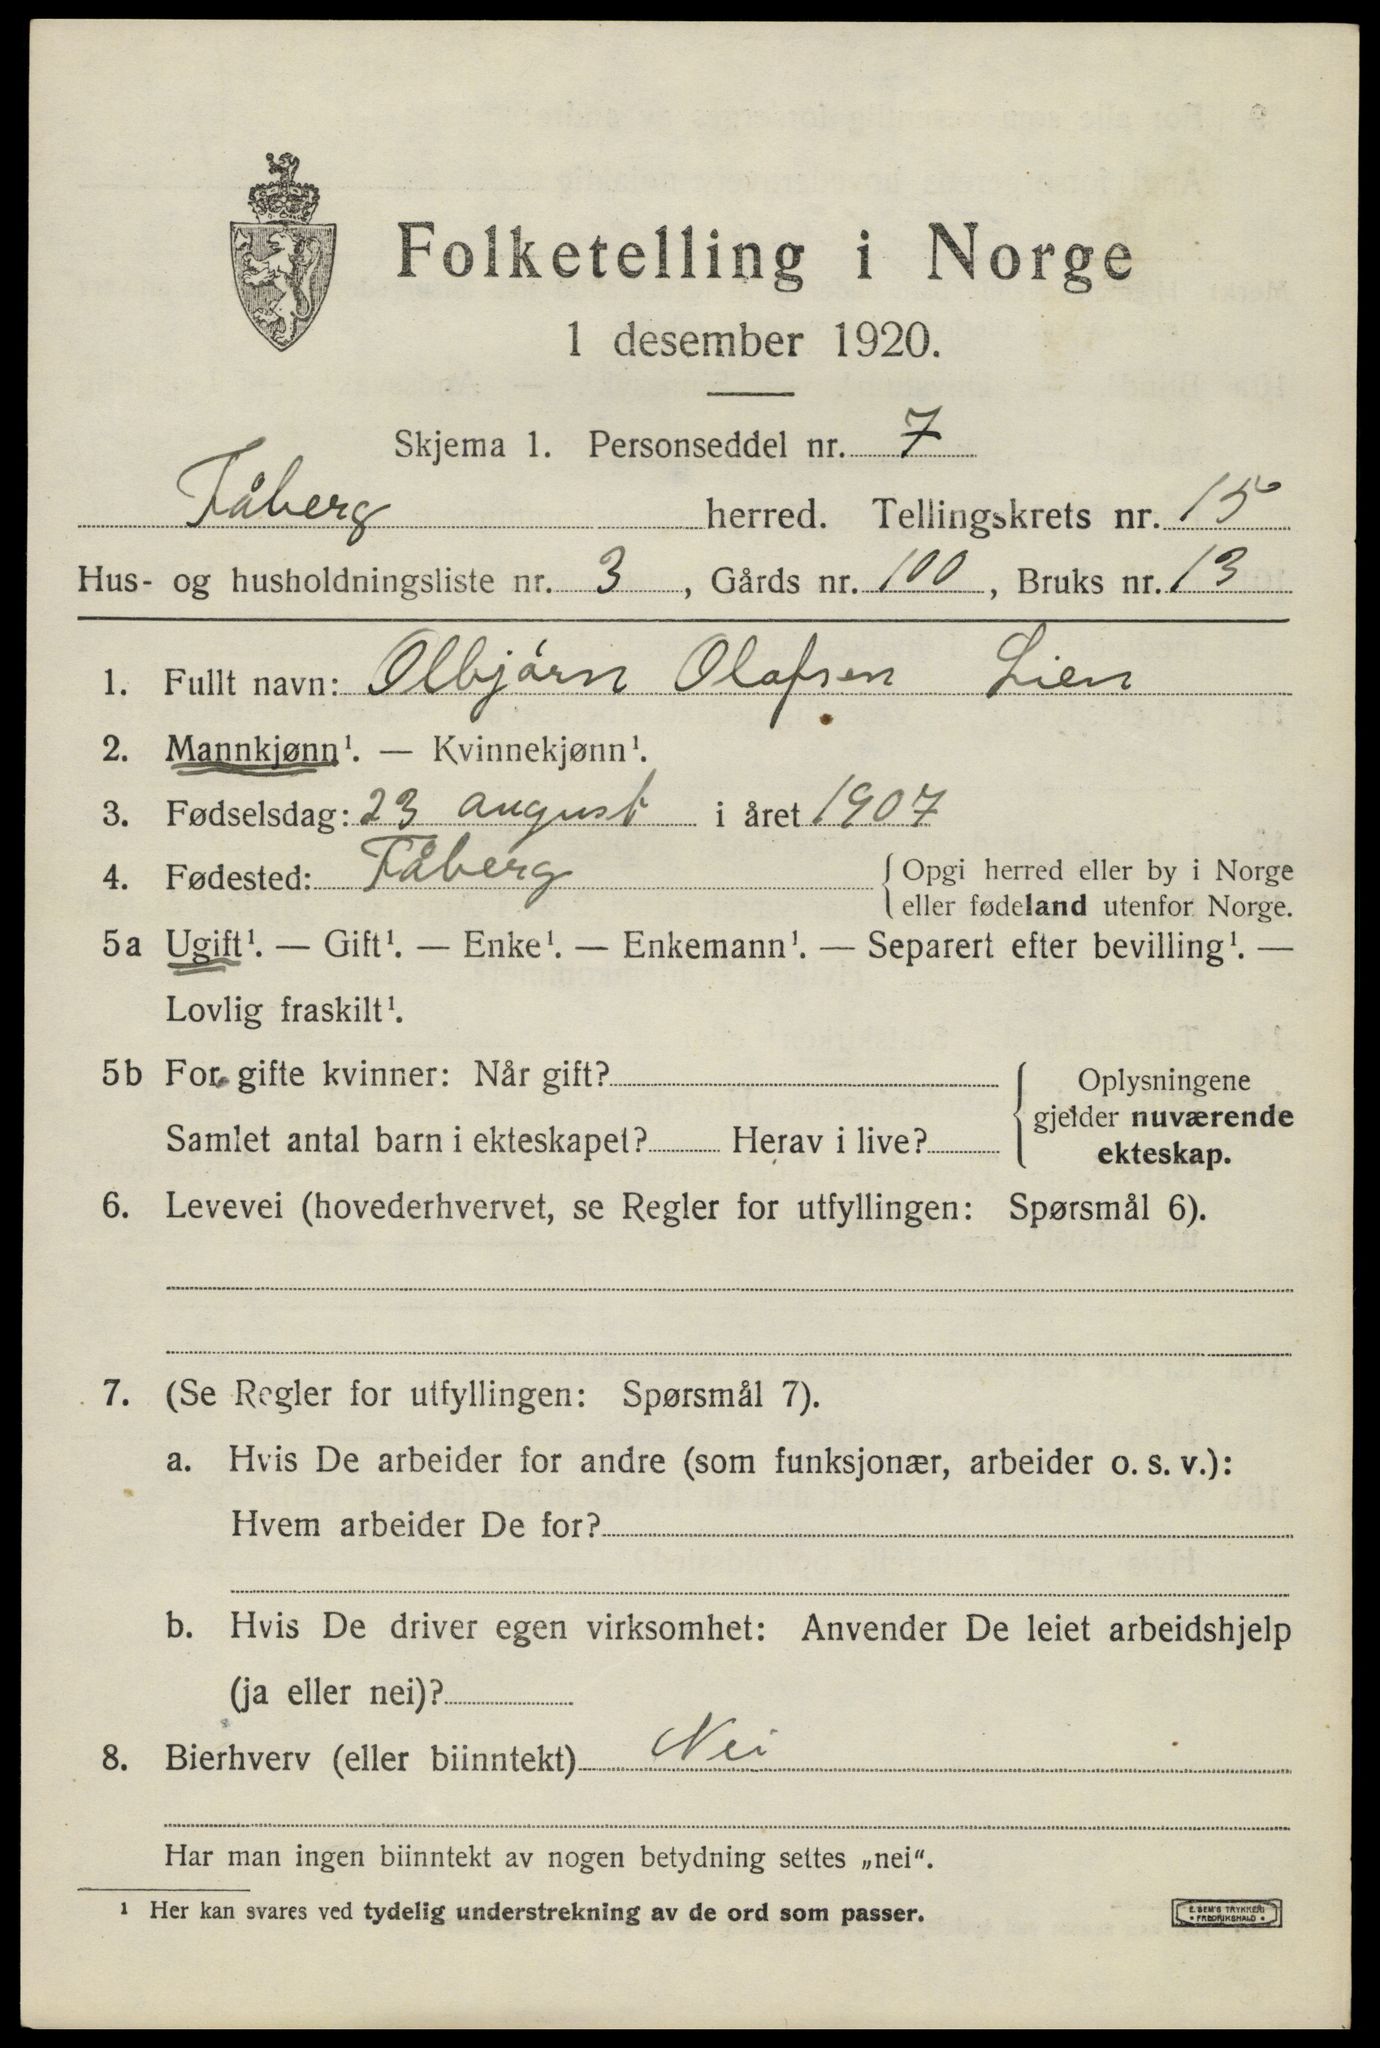 Folketelling i Norge
1 desember 1920.
Skjema 1. Personseddel nr. 7
Fåberg herred. Tellingskrets nr. 15
Hus- og husholdningsliste nr. 3, Gårds nr. 100, Bruks nr. 13
1. Fullt navn: Olbjørn Olafsen Lien
2. Mannkjønn¹. — Kvinnekjønn¹.
3. Fødselsdag: 23 august i året 1907
4. Fødested: Fåberg { Opgi herred eller by i Norge
eller fødeland utenfor Norge.
5a Ugift¹. — Gift¹. — Enke¹. — Enkemann¹. — Separert efter bevilling¹. —
Lovlig fraskilt¹.
5b For gifte kvinner: Når gift? { Oplysningene
gjelder nuværende
Samlet antal barn i ekteskapet? Herav i live?
ekteskap.
6. Levevei (hovederhvervet, se Regler for utfyllingen: Spørsmål 6).
7. (Se Regler for utfyllingen: Spørsmål 7).
a. Hvis De arbeider for andre (som funksjonær, arbeider o. s. v.):
Hvem arbeider De for?
b. Hvis De driver egen virksomhet: Anvender De leiet arbeidshjelp
(ja eller nei)?
8. Bierhverv (eller biinntekt) Nei
Har man ingen biinntekt av nogen betydning settes „nei“.
¹ Her kan svares ved tydelig understrekning av de ord som passer.
E. SEM'S TRYKKERI
• FREDRIKSHALD •